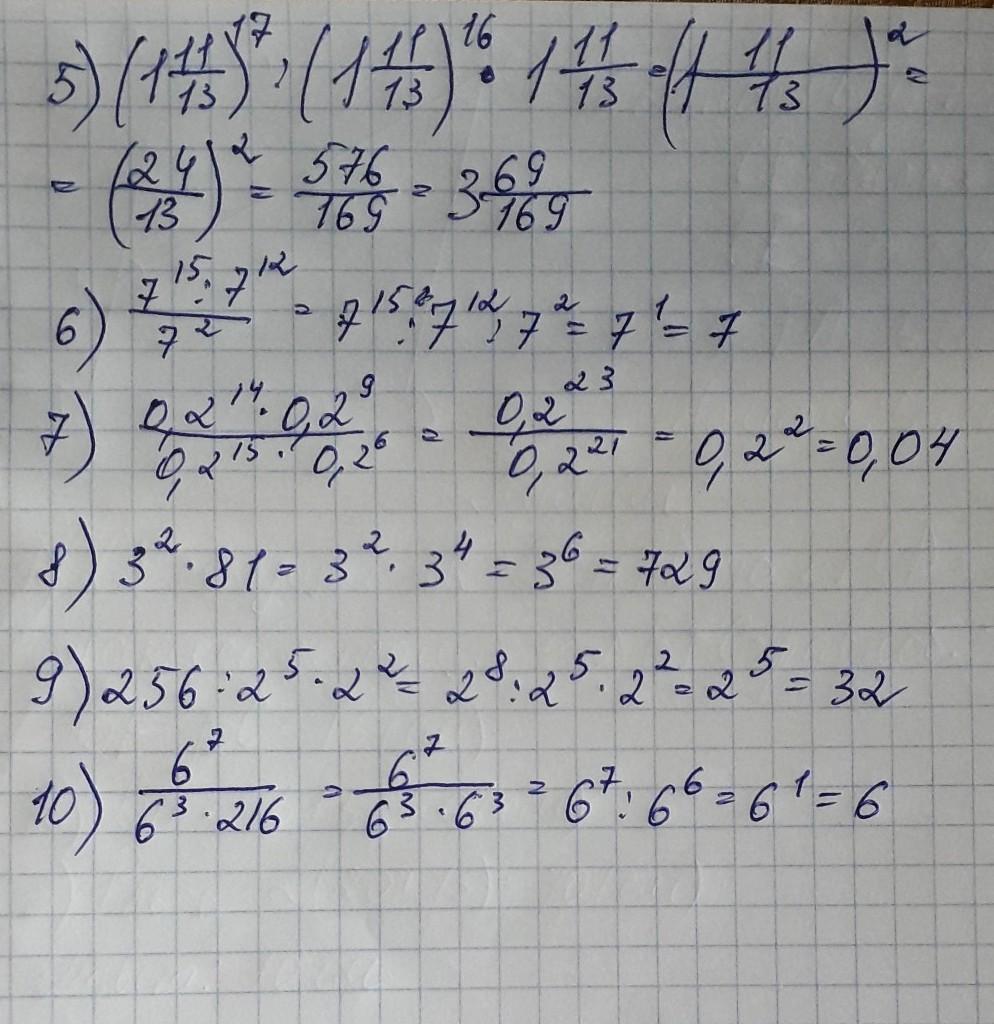 5) (1 11/13)^17 : (1 11/13)^16 · 1 11/13 = (1 11/13)^2 =
= (24/13)^2 = 576/169 = 3 69/169
6) (7^15 : 7^12)/7^2 = 7^15 : 7^12 : 7^2 = 7^1 = 7
7) (0,2^14 · 0,2^9)/(0,2^15 · 0,2^6) = 0,2^23/0,2^21 = 0,2^2 = 0,04
8) 3^2 · 81 = 3^2 · 3^4 = 3^6 = 729
9) 256 : 2^5 · 2^2 = 2^8 : 2^5 · 2^2 = 2^5 = 32
10) 6^7/(6^3 · 216) = 6^7/(6^3 · 6^3) = 6^7 : 6^6 = 6^1 = 6